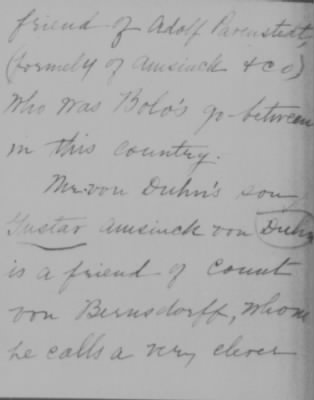 friend of Adolf Pavenstedt,
(formely of Amsinck & Co)
who was Bolo's go-between
in this country.
Mr von Duhn's son
Gustav Amsinck von Duhn
is a friend of Count
von Bernsdorff, whom
he calls a very clever